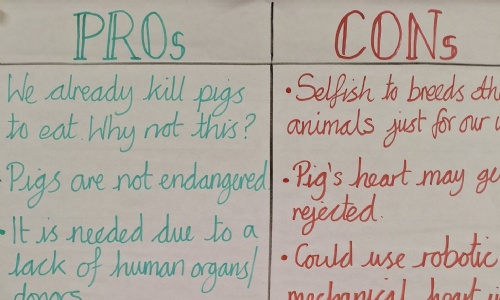 PROs
We already kill pigs
to eat. Why not this?
• Pigs are not endangered
• It is needed due to a
lack of human organs/
donors
CONs
• Selfish to breeds
animals just for our
• Pig's heart may
rejected.
• Could use robotic
mechanical heart